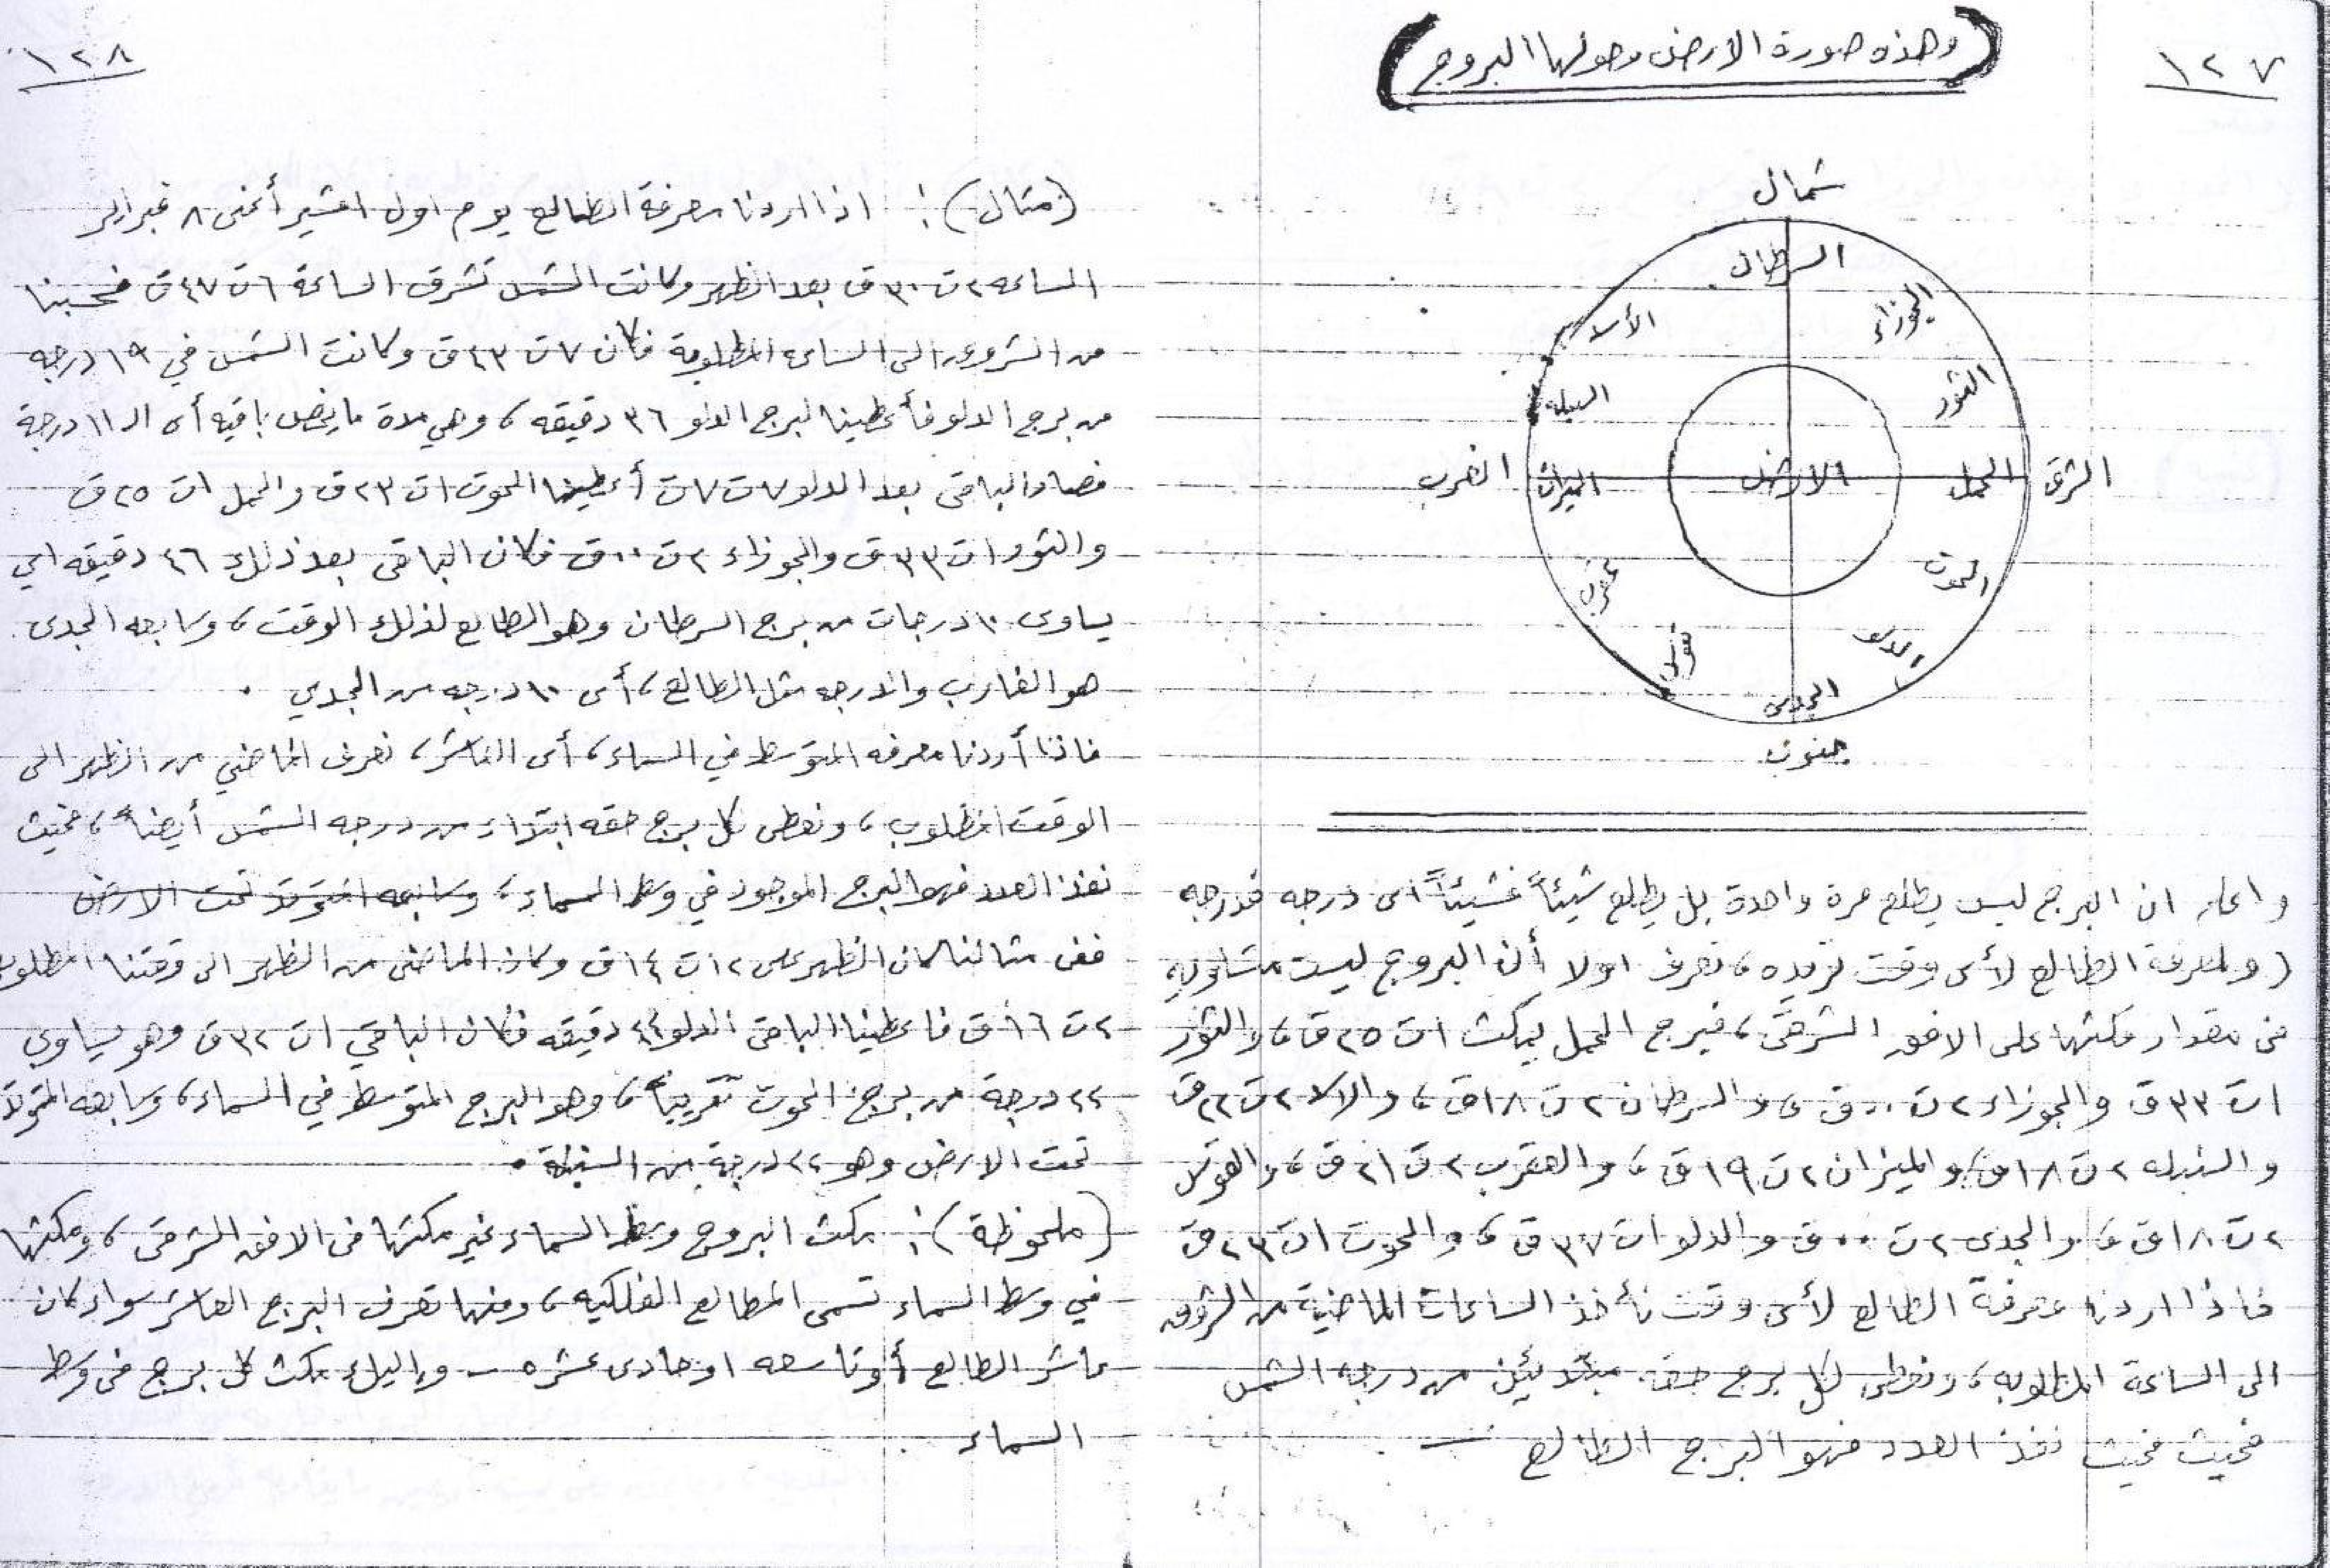 ١٢٧
(وهذه صورة الارض وحولها البروج)
شمال
السرطان
الجوزاء
الأسد
الثور
السبله
الشرق
الحمل
الارض
الميزان
الغرب
الحوت
عقرب
الدلو
قوس
الجدى
جنوب
واعلم ان البرج ليس يطلع مرة واحدة بل يطلع شيئاً فشيئاً اى درجه فدرجه
(ولمعرفة الطالع لأى وقت نريده، نعرف اولا أن البروج ليست متساويه
فى مقدار مكثها على الافق الشرقى، فبرج الحمل يمكث ١ت ٢٥ق، والثور
١ت ٣٣ق والجوزاء ٢ت ٠٠ق، والسرطان ٢ت ١٨ق، والاسد ٢ت ٢٢ق
والسنبله ٢ت ١٨ق، والميزان ٢ت ١٩ق، والعقرب ٢ت ٢١ق، والقوس
٢ت ١٨ق، والجدى ٢ت ٠٠ق والدلو ١ت ٣٧ق، والحوت ١ت ٢٣ق
فاذا اردنا معرفة الطالع لأى وقت نأخذ الساعات الماضية من الشروق
الى الساعة المطلوبه، ونعطى لكل برج حقه مبتدئين من درجه الشمس
فحيث فحيث نفذ العدد فهو البرج الطالع –
١٢٨
(مثال): اذا اردنا معرفة الطالع يوم اول امشير أعنى ٨ فبراير
الساعه ٢ت ٣٠ق بعد الظهر وكانت الشمس تشرق الساعة ٦ت ٤٧ق فحسبنا
من الشروق الى الساعه المطلوبة فكان ٧ت ٤٣ق وكانت الشمس في ١٩ درجه
من برج الدلو فأعطينا لبرج الدلو ٣٦ دقيقه، وهي مدة ما يخص باقيه أى الـ ١١ درجة
فصار الباقى بعد الدلو ٧ت ٧ق أعطينا الحوت ١ت ٢٣ق والحمل ١ت ٢٥ق
والثور ١ت ٣٣ق والجوزاء ٢ت ٠٠ق فكان الباقى بعد ذلك ٤٦ دقيقه اي
يساوى ١٠ درجات من برج السرطان وهو الطالع لذلك الوقت، وسابعه الجدى
هو الغارب والدرجه مثل الطالع، أى ١٠ درجه من الجدي .
فاذا أردنا معرفه المتوسط في السماء، أى العاشر، نعرف الماضي من الظهر الى
الوقت المطلوب، ونعطى كل برج حقه ابتداء من درجه الشمس أيضاً، فحيث
نفذ العدد فهو البرج الموجود في وسط السماء، وسابعه المتوتد تحت الارض
ففى مثالنا كان الظهر على ١٢ت ١٤ق وكان الماضى من الظهر الى وقتنا المطلوب
٢ت ١٦ق فاعطينا الباقى الدلو ٤٤ دقيقه فكان الباقي ١ت ٣٢ق وهو يساوي
٢٢ درجة من برج الحوت تقريباً، وهو البرج المتوسط في السماء، وسابعه المتوتد
تحت الارض وهو ٢٢ درجة من السنبلة .
(ملحوظة): مكث البروج وسط السماء غير مكثها فى الافق الشرقى، ومكثها
في وسط السماء تسمى المطالع الفلكيه، ومنها تعرف البرج العاشر سواء كان
عاشر الطالع أو تاسعه او حادى عشره – وإليك مكث كل برج فى وسط
السماء